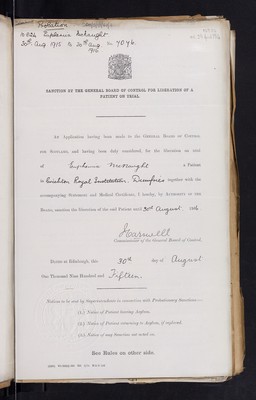 Probation
Euphemia McNaught
30th Aug 1915 to 30th Aug 1916
No 4096.
SANCTION BY THE GENERAL BOARD OF CONTROL FOR LIBERATION OF A
PATIENT ON TRIAL
An Application having been made to the GENERAL BOARD OF CONTROL
FOR SCOTLAND, and having been duly considered, for the liberation on trial
of Euphemia McNaught a Patient
in Crichton Royal Institution, Dumfries together with the
accompanying Statement and Medical Certificate, I hereby, by AUTHORITY OF THE
BOARD, sanction the liberation of the said Patient until 30th August, 1916
Commissioner of the General Board of Control.
DATED at Edinburgh, this 30th day of August
One Thousand Nine Hundred and Fifteen.
Notices to be sent by Superintendents in connection with Probationary Sanctions:—
(1.) Notice of Patient leaving Asylum.
(2.) Notice of Patient returning to Asylum, if replaced.
(3.) Notice of any Sanction not acted on.
See Rules on other side.